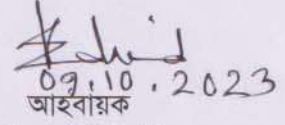 09.10.2023
আহবায়ক